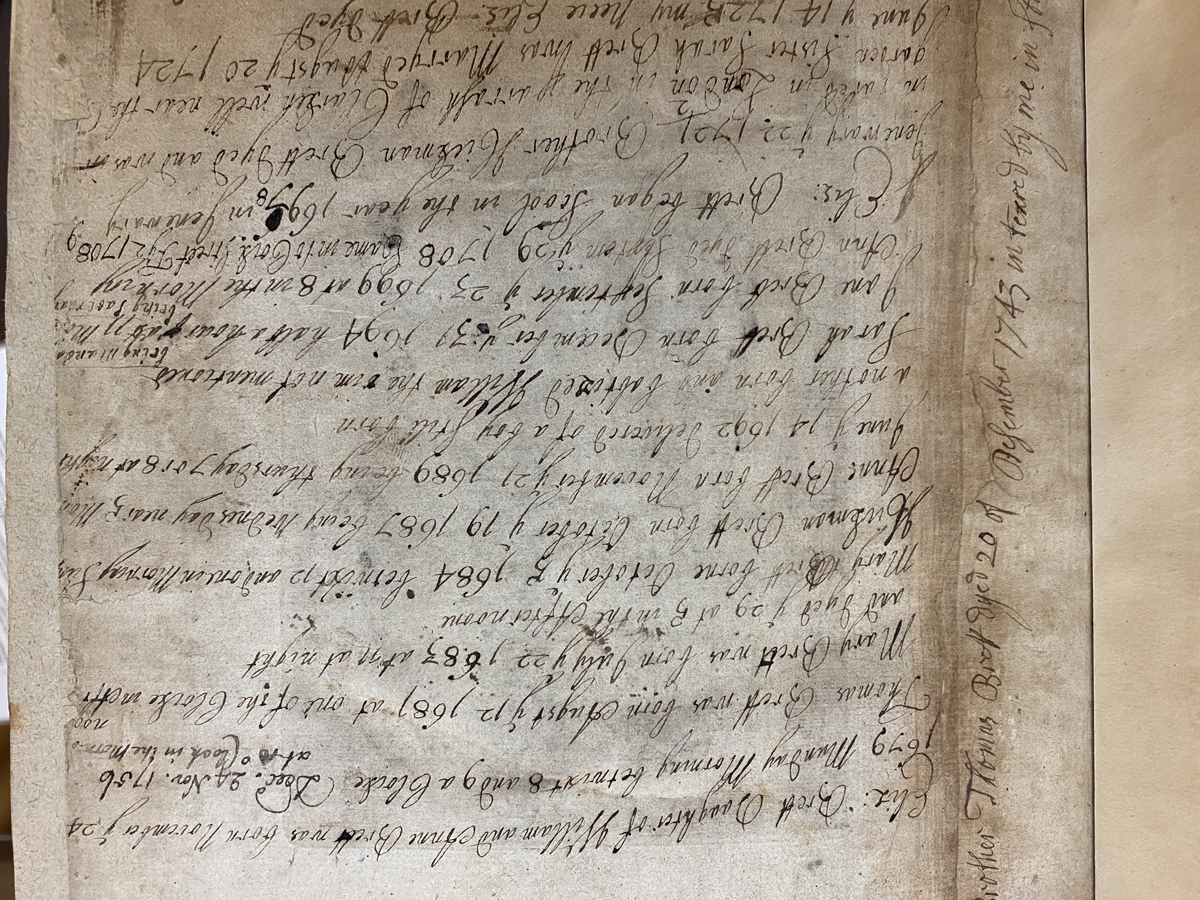 Eliz: Brett Daughter of William and Anne Brett was born November ye 24
1679 Munday Morning betwixt 8 and 9 a Clock Decd. 24 Nov. 1756
at 10 Clock in the Morn
Thomas Brett was born Augst ye 12 1681 at one of the Clocke in aftr
noo
Mary Brett was born July ye 22 1683 at 11 at night
and dyed ye 29 at 5 in the Afternoone
Mary Brett borne October ye 5 1684 betwixt 12 and one in Morning
Hickman Brett born October ye 19 1687 being Wednesday near 5
Anne Brett born November ye 21 1689 being thursday 7 or 8 at night
June ye 14 1692 delivered of a boy still born
a nother born and babtized William the time not mentioned
Sarah Brett born December ye 31 1694 half a hour past 11
being munda
Jane Brett born September ye 23 1699 at 8 in the Morning
being Saterday
Ann Brett dyed Septem ye 29 1708 Came into Cork Street 1708/9
Eliz: Brett began Scool in the year 1697/8 in Jenewary
Jenewary ye 22 1721/2 Brother Hickman Brett dyed and was
in London in the parrash of Clarken well near the
garden Sister Sarah Brett was Marryed Augst ye 20 1724
June ye 14 1728 my neece Eliz: Brett dyed
Brother Thomas Brett dyed 20 of Desember 1743 intered by me in St